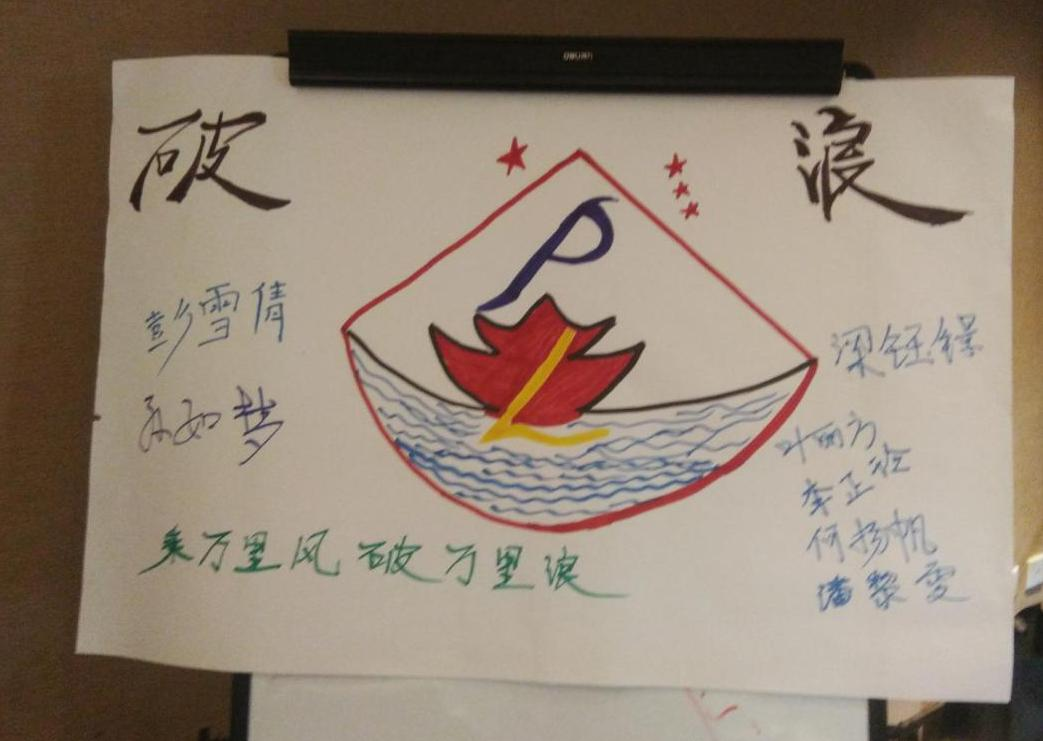 deli
破 浪
P
L
彭雪倩
孙如梦
梁钰锦
叶丽方
李正欢
何扬帆
潘黎雯
乘万里风 破万里浪